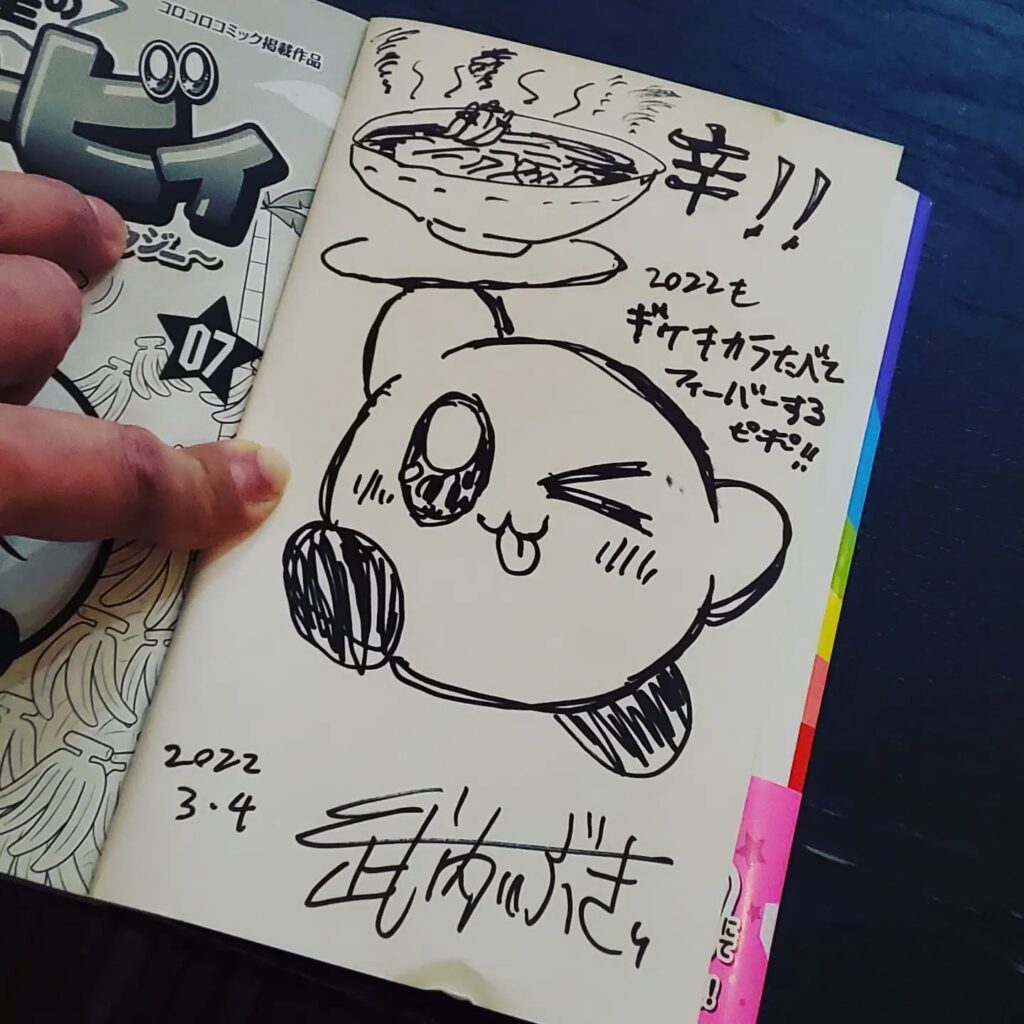 コロコロコミック掲載作品
の
ービィ
ジー〜
07
辛!!
2022も
ゲキカラたべて
フィーバーする
ピ・ポ!!
2022
3・4
武内いぶき
にて
!